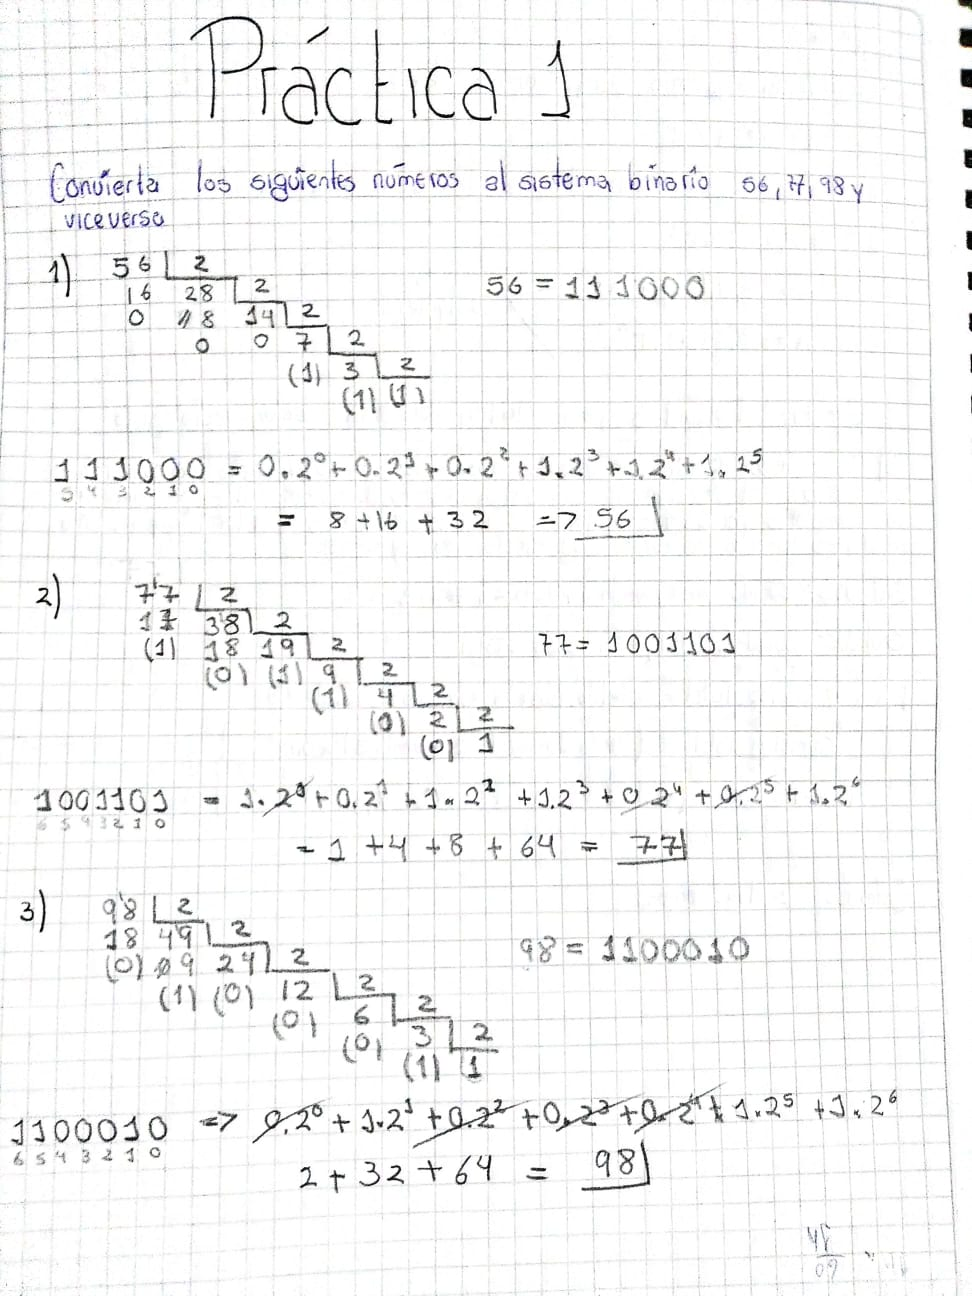 Práctica 1
Convierta los siguientes números al sistema binario 56, 77, 98 y
viceversa
1) 56 2
16 28 2
0 18 14 2
0 0 7 2
(1) 3 2
(1) (1)
56 = 111000
111000 = 0.2⁰ + 0.2¹ + 0.2² + 1.2³ + 1.2⁴ + 1.2⁵
5 4 3 2 1 0
= 8 + 16 + 32 => 56
2) 77 2
17 38 2
(1) 18 19 2
(0) (1) 9 2
(1) 4 2
(0) 2 2
(0) 1
77 = 1001101
1001101 = 1.2⁰ + 0.2¹ + 1.2² + 1.2³ + 0.2⁴ + 0.2⁵ + 1.2⁶
6 5 4 3 2 1 0
= 1 + 4 + 8 + 64 = 77
3) 98 2
18 49 2
(0) 09 24 2
(1) (0) 12 2
(0) 6 2
(0) 3 2
(1) 1
98 = 1100010
1100010 => 0.2⁰ + 1.2¹ + 0.2² + 0.2³ + 0.2⁴ + 1.2⁵ + 1.2⁶
6 5 4 3 2 1 0
2 + 32 + 64 = 98